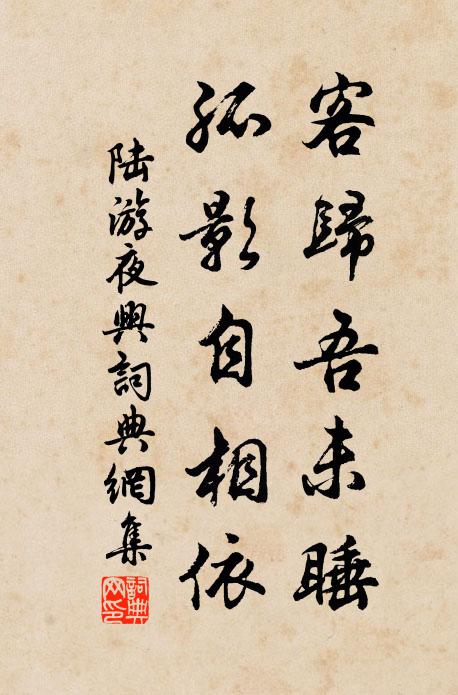 客歸吾未睡
孤影自相依
陸游夜興詞典網集
詞典網印